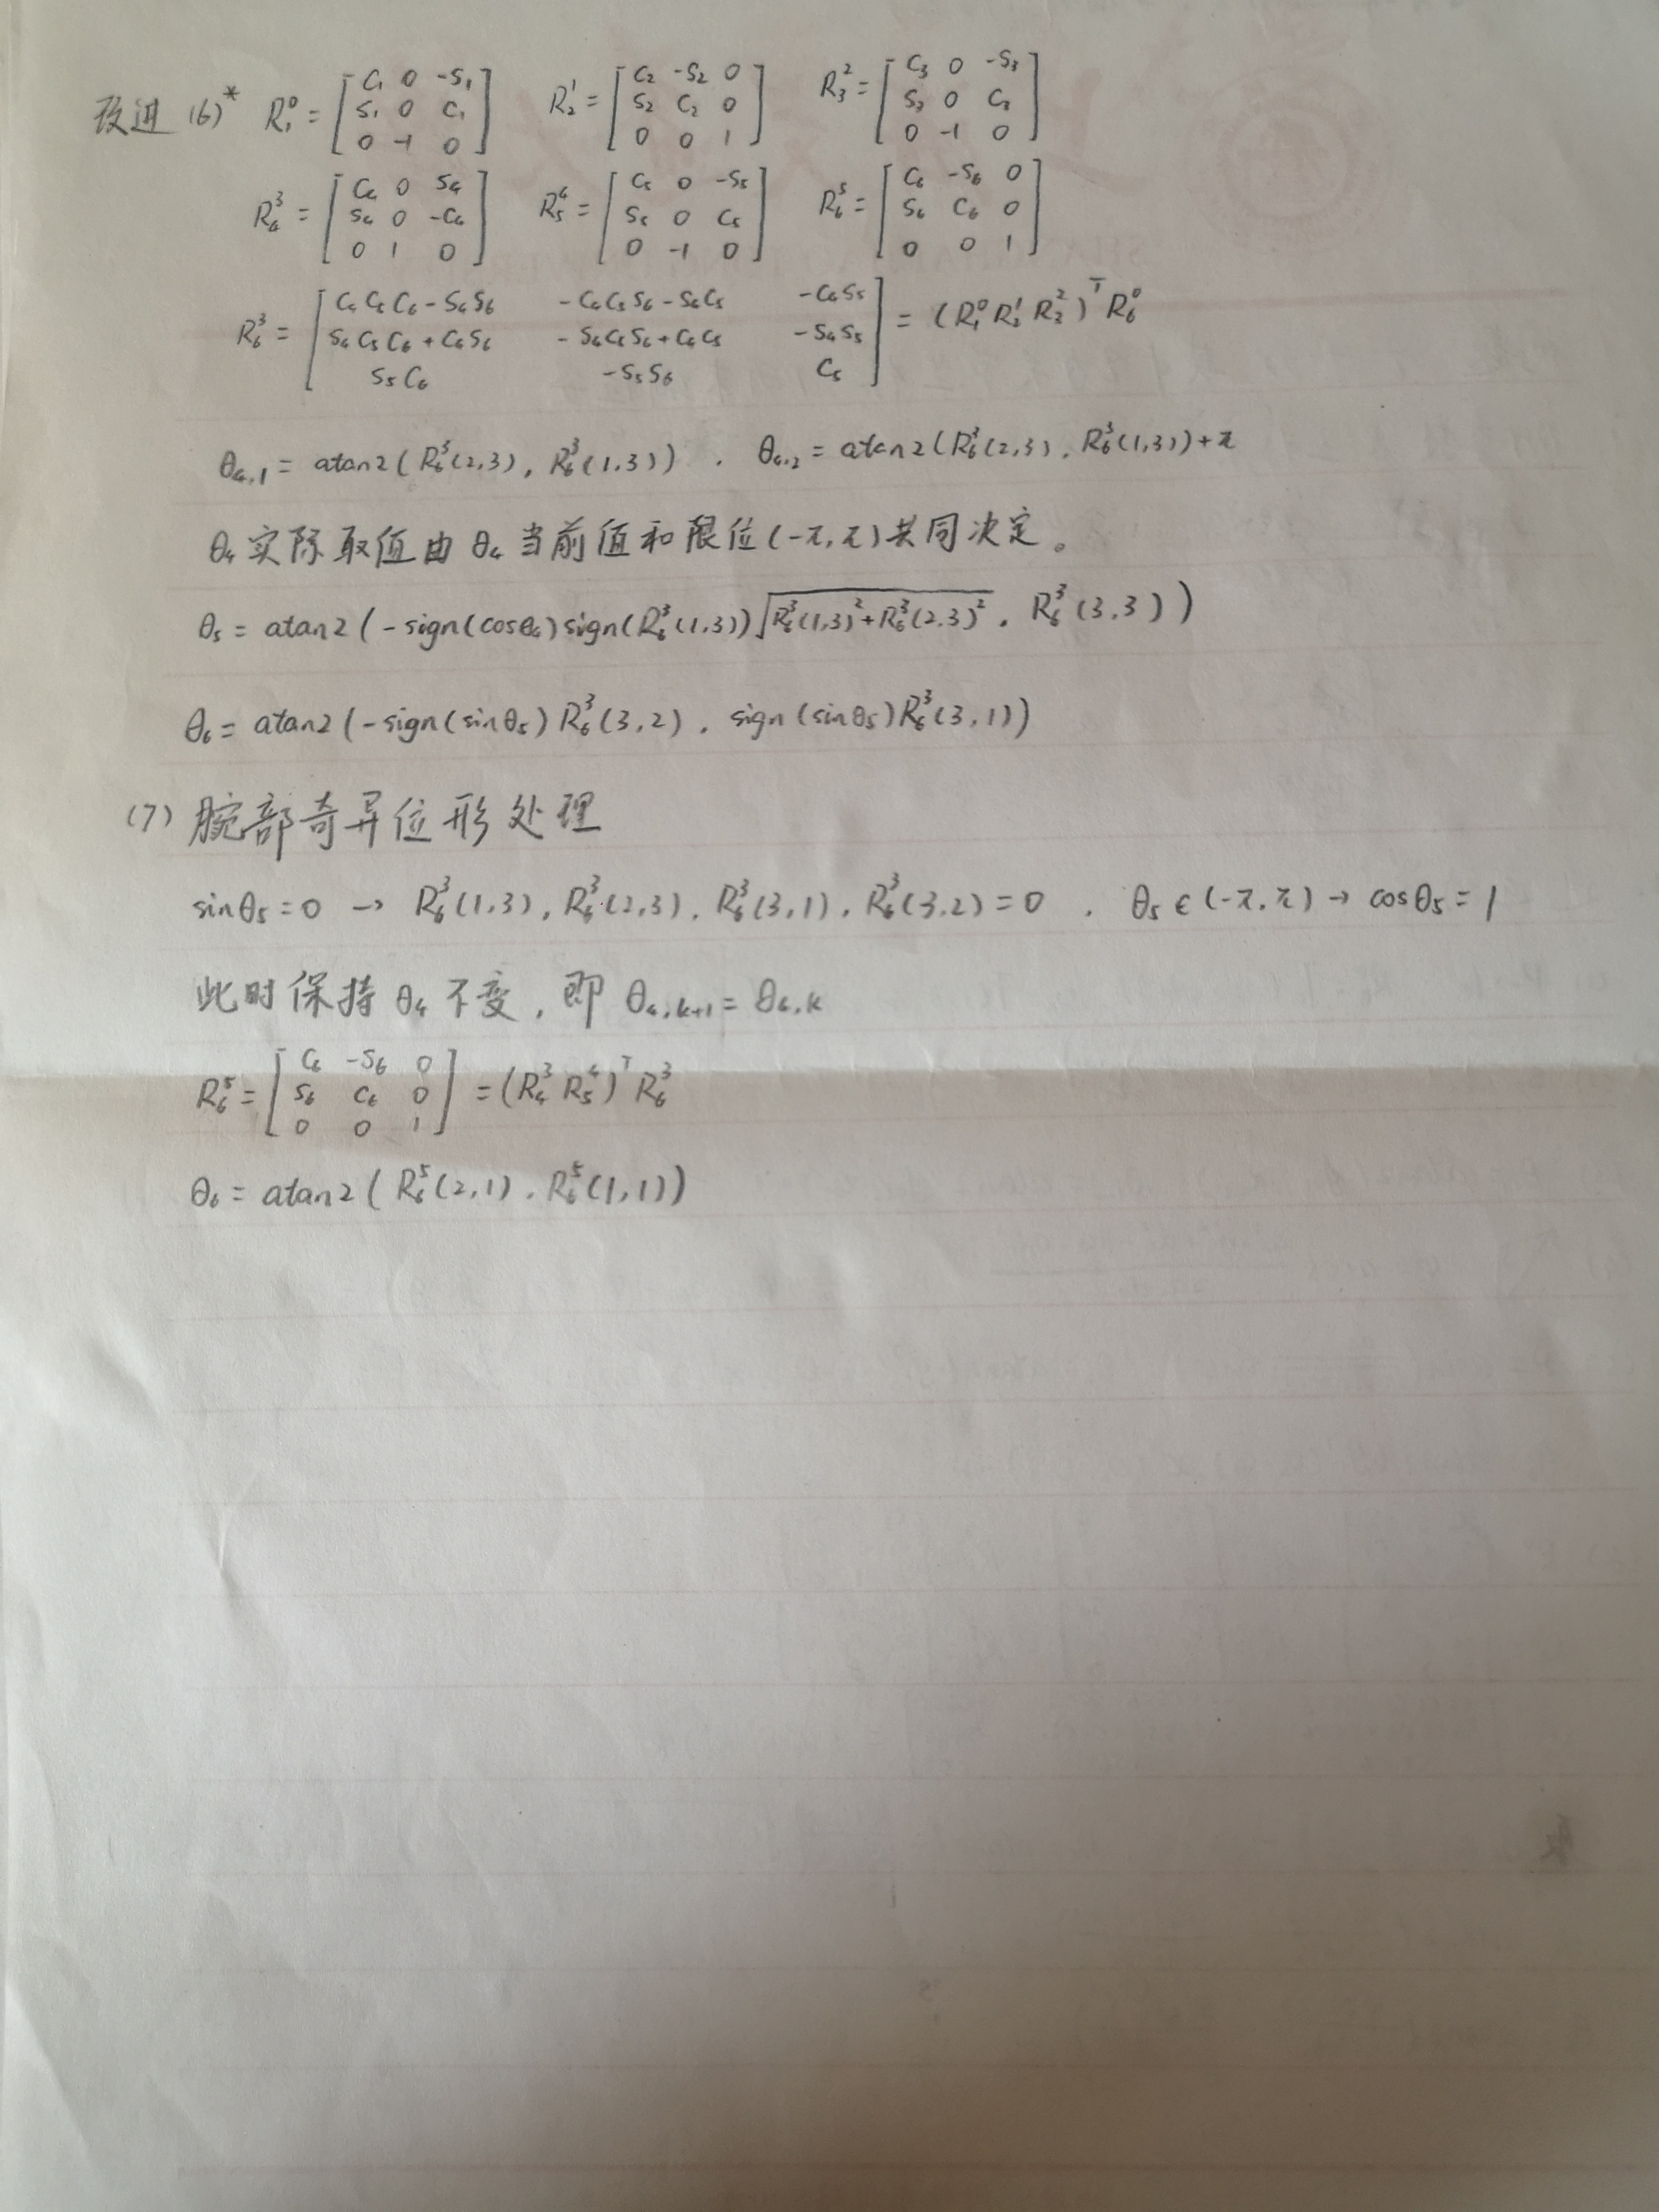 改进 (6)* R₁⁰ = [C₁ 0 -S₁; S₁ 0 C₁; 0 -1 0] R₂¹ = [C₂ -S₂ 0; S₂ C₂ 0; 0 0 1] R₃² = [C₃ 0 -S₃; S₃ 0 C₃; 0 -1 0]
R₄³ = [C₄ 0 S₄; S₄ 0 -C₄; 0 1 0] R₅⁴ = [C₅ 0 -S₅; S₅ 0 C₅; 0 -1 0] R₆⁵ = [C₆ -S₆ 0; S₆ C₆ 0; 0 0 1]
R₆³ = [C₄C₅C₆-S₄S₆ -C₄C₅S₆-S₄C₅ -C₄S₅; S₄C₅C₆+C₄S₆ -S₄C₅S₆+C₄C₅ -S₄S₅; S₅C₆ -S₅S₆ C₅] = (R₁⁰R₂¹R₃²)ᵀR₆⁰
θ₄,₁ = atan2(R₆³(2,3), R₆³(1,3)) , θ₄,₂ = atan2(R₆³(2,3), R₆³(1,3))+π
θ₄实际取值由θ₄当前值和限位(-π,π)共同决定。
θ₅ = atan2(-sign(cosθ₄)sign(R₆³(1,3))√(R₆³(1,3)²+R₆³(2,3)²), R₆³(3,3))
θ₆ = atan2(-sign(sinθ₅)R₆³(3,2), sign(sinθ₅)R₆³(3,1))
(7) 腕部奇异位形处理
sinθ₅=0 → R₆³(1,3), R₆³(2,3), R₆³(3,1), R₆³(3,2)=0 , θ₅∈(-π,π) → cosθ₅=1
此时保持θ₄不变, 即 θ₄,k+1=θ₄,k
R₆⁵ = [C₆ -S₆ 0; S₆ C₆ 0; 0 0 1] = (R₄³R₅⁴)ᵀR₆³
θ₆ = atan2(R₆⁵(2,1), R₆⁵(1,1))